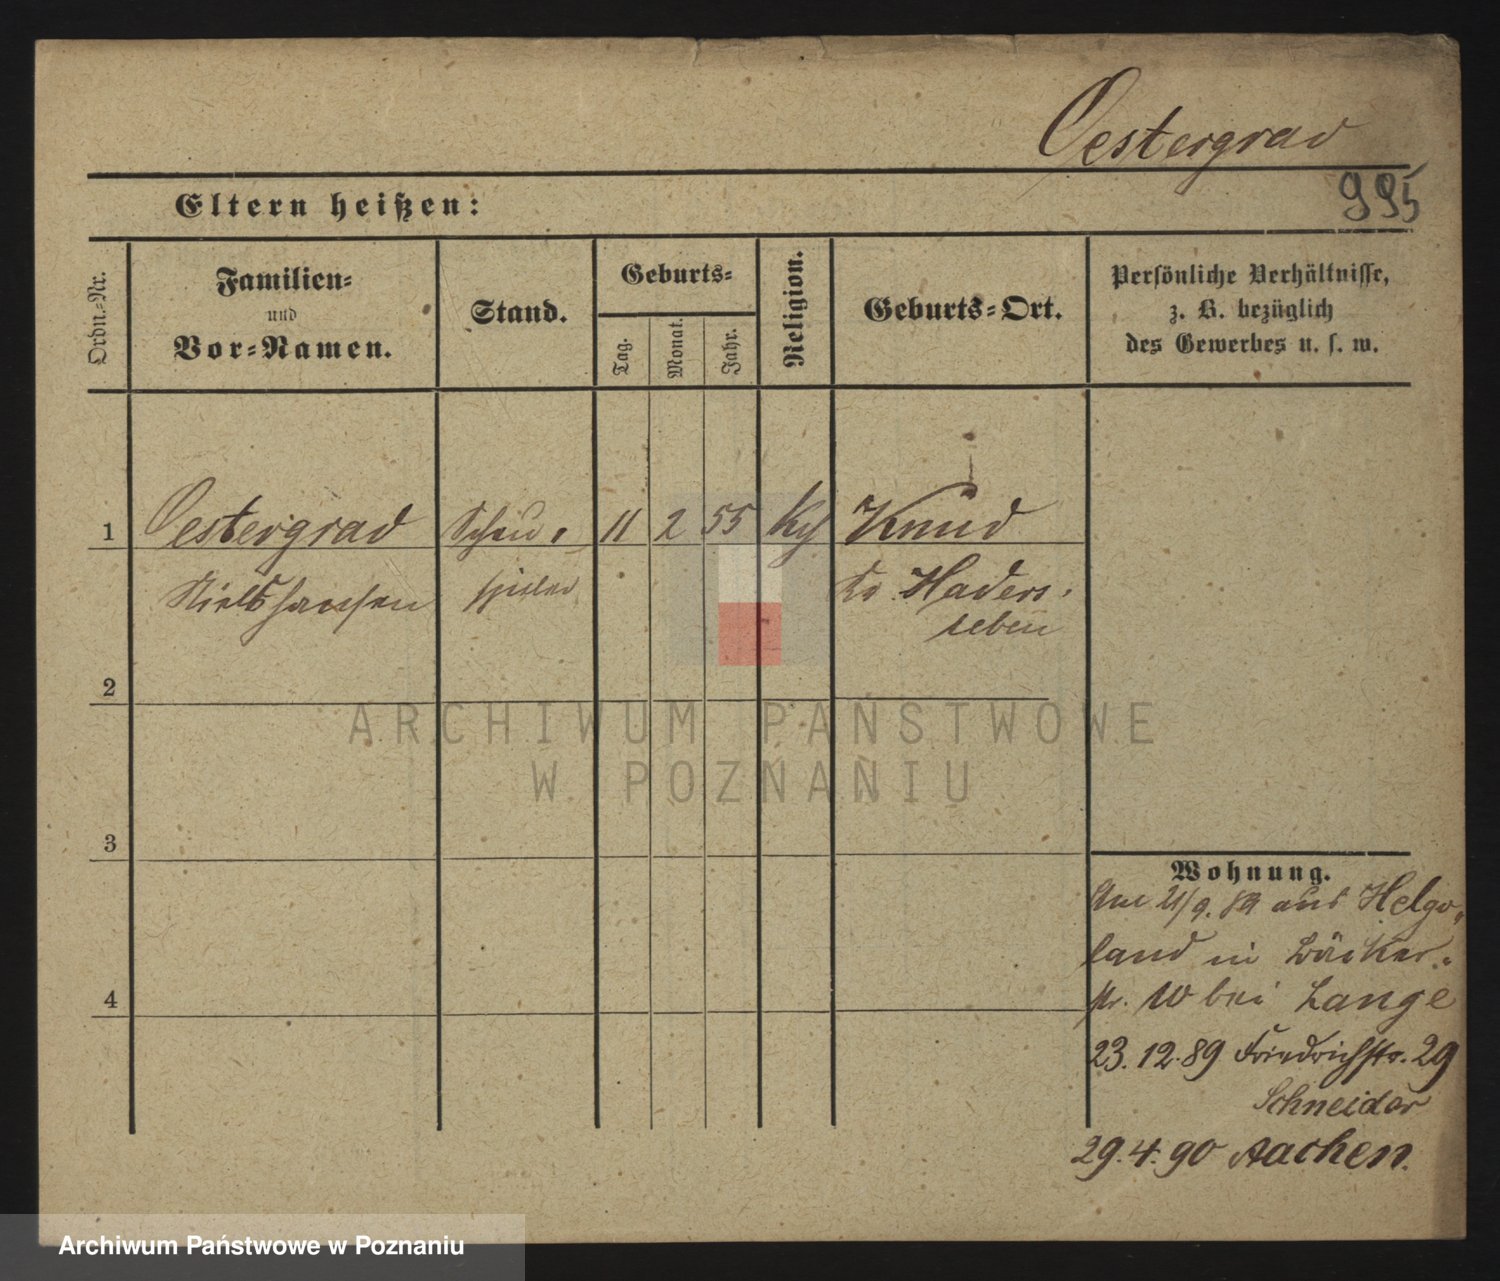 Oestergrad
Eltern heißen:
995
Ordn.-Nr.
Familien-
und
Vor-Namen.
Stand.
Geburts-
Tag.
Monat.
Jahr.
Religion.
Geburts-Ort.
Persönliche Verhältnisse,
z. B. bezüglich
des Gewerbes u. s. w.
1
Oestergrad
Schau-
11
2
55
Knud
Nielshansen
spieler
Kr. Haders-
leben
2
ARCHIWUM PAŃSTWOWE
W POZNANIU
3
Wohnung.
21/9. 89 aus Helgo-
land in Bäcker-
str. 10 bei Lange
4
23.12.89 Friedrichstr. 29
Schneider
29.4.90 Aachen.
Archiwum Państwowe w Poznaniu